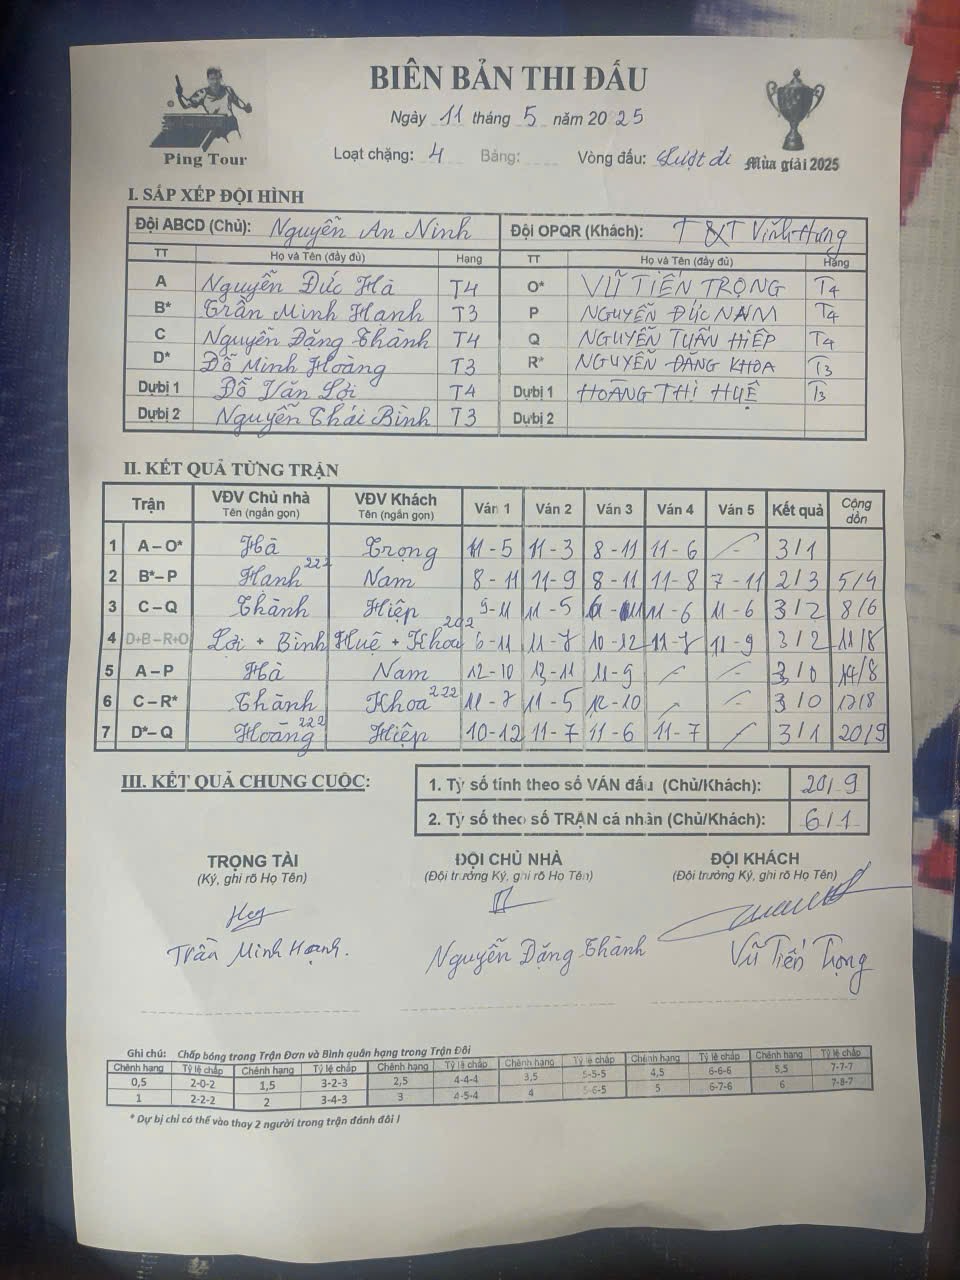 BIÊN BẢN THI ĐẤU
Ngày 11 tháng 5 năm 2025
Ping Tour
Loạt chặng: 4 Bảng: Vòng đấu: lượt đi Mùa giải 2025
I. SẮP XẾP ĐỘI HÌNH
Đội ABCD (Chủ): Nguyễn An Ninh Đội OPQR (Khách): T&T Vĩnh Hưng
TT Họ và Tên (đầy đủ) Hạng TT Họ và Tên (đầy đủ) Hạng
A Nguyễn Đức Hà T4 O* VŨ TIẾN TRỌNG T4
B* Trần Minh Hạnh T3 P NGUYỄN ĐỨC NAM T4
C Nguyễn Đăng Thành T4 Q NGUYỄN TUẤN HIỆP T4
D* Đỗ Minh Hoàng T3 R* NGUYỄN ĐĂNG KHOA T3
Dự bị 1 Đỗ Văn Lợi T4 Dự bị 1 HOÀNG THỊ HUỆ T3
Dự bị 2 Nguyễn Thái Bình T3 Dự bị 2
II. KẾT QUẢ TỪNG TRẬN
Trận VĐV Chủ nhà Tên (ngắn gọn) VĐV Khách Tên (ngắn gọn) Ván 1 Ván 2 Ván 3 Ván 4 Ván 5 Kết quả Cộng dồn
1 A – O* Hà Trọng 11 - 5 11 - 3 8 - 11 11 - 6 - 3/1
2 B* – P Hạnh 222 Nam 8 - 11 11 - 9 8 - 11 11 - 8 7 - 11 2/3 5/4
3 C – Q Thành Hiệp 9 - 11 11 - 5 11 - 6 11 - 6 3/2 8/6
4 D+B – R+O Lợi + Bình Huệ + Khoa 202 6 - 11 11 - 7 10 - 12 11 - 7 11 - 9 3/2 11/8
5 A – P Hà Nam 12 - 10 13 - 11 11 - 9 - - 3/0 14/8
6 C – R* Thành Khoa 222 11 - 7 11 - 5 12 - 10 - - 3/0 17/8
7 D* – Q Hoàng 222 Hiệp 10 - 12 11 - 7 11 - 6 11 - 7 - 3/1 20/9
III. KẾT QUẢ CHUNG CUỘC:
1. Tỷ số tính theo số VÁN đấu (Chủ/Khách): 20/9
2. Tỷ số theo số TRẬN cá nhân (Chủ/Khách): 6/1
TRỌNG TÀI ĐỘI CHỦ NHÀ ĐỘI KHÁCH
(Ký, ghi rõ Họ Tên) (Đội trưởng Ký, ghi rõ Họ Tên) (Đội trưởng Ký, ghi rõ Họ Tên)
Trần Minh Hạnh. Nguyễn Đăng Thành Vũ Tiến Trọng
Ghi chú: Chấp bóng trong Trận Đơn và Bình quân hạng trong Trận Đôi
Chênh hạng Tỷ lệ chấp Chênh hạng Tỷ lệ chấp Chênh hạng Tỷ lệ chấp Chênh hạng Tỷ lệ chấp Chênh hạng Tỷ lệ chấp Chênh hạng Tỷ lệ chấp
0,5 2-0-2 1,5 3-2-3 2,5 4-4-4 3,5 5-5-5 4,5 6-6-6 5,5 7-7-7
1 2-2-2 2 3-4-3 3 4-5-4 4 5-6-5 5 6-7-6 6 7-8-7
* Dự bị chỉ có thể vào thay 2 người trong trận đánh đôi !